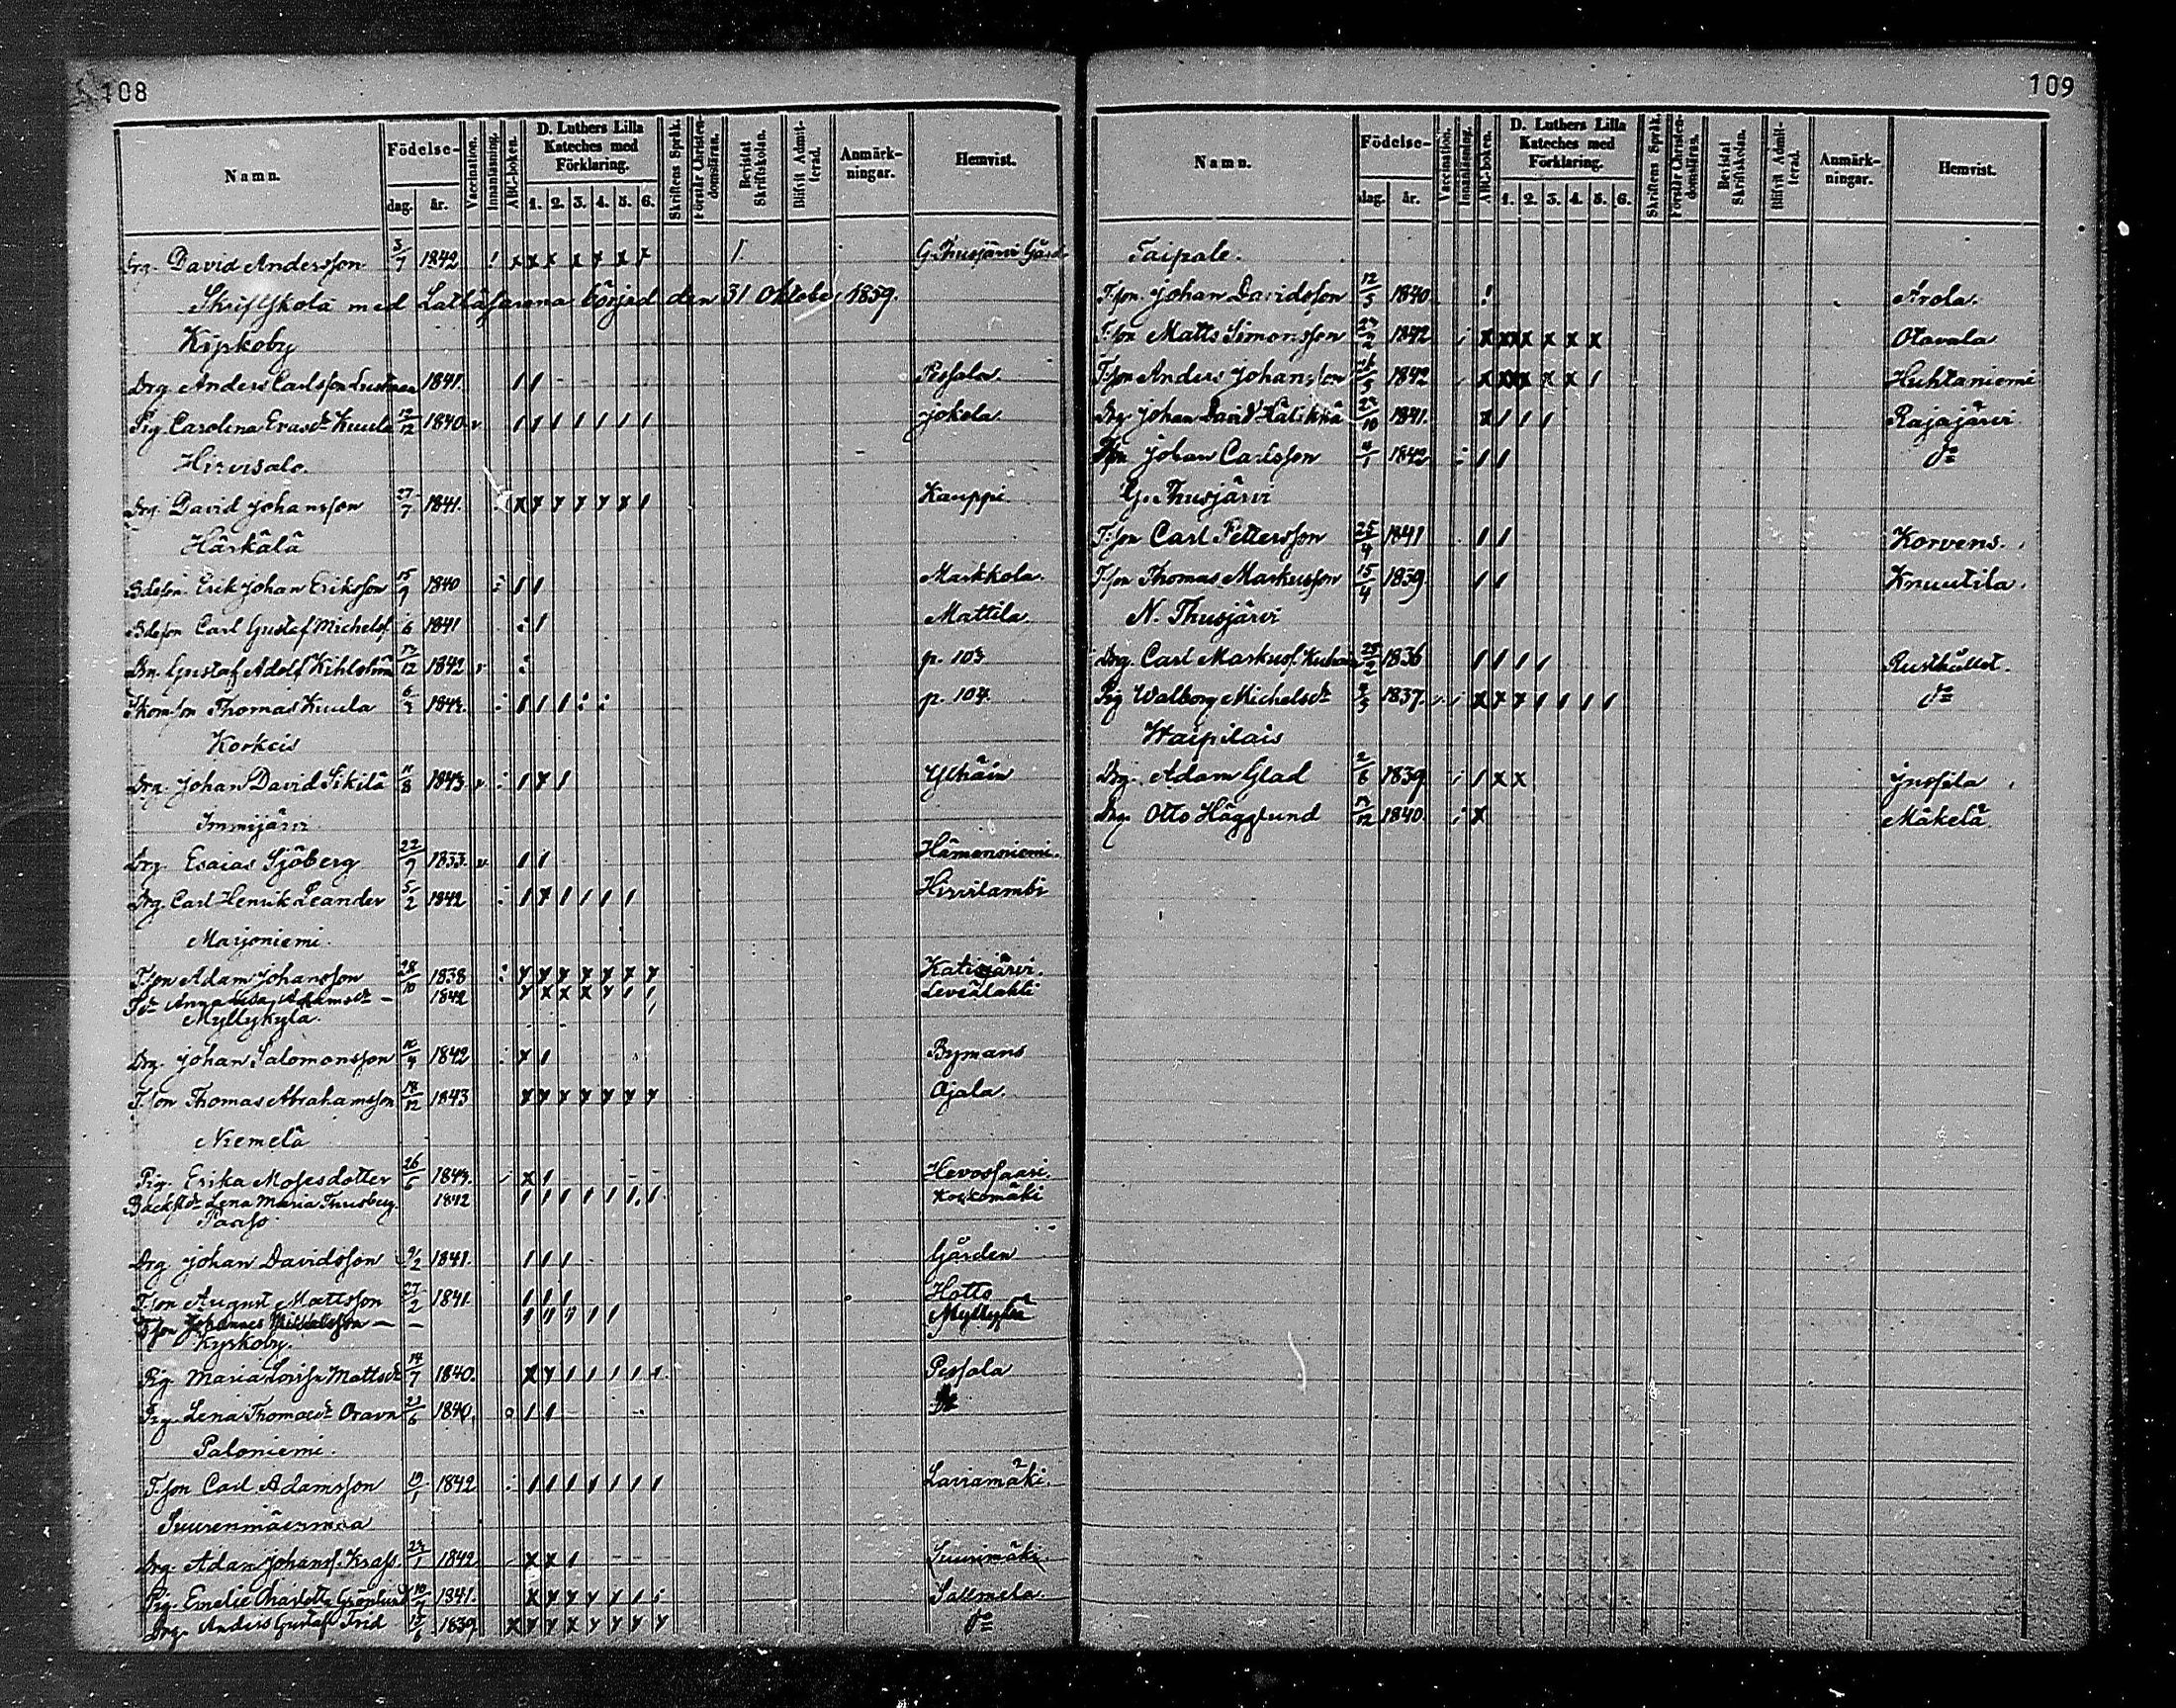 108
Namn. Födelse- dag. år. Vaccination. Innanläsning. ABC-boken. D. Luthers Lilla Kateches med Förklaring. 1. 2. 3. 4. 5. 6. Skriftens Språk. Förstår Christendomsläran. Bevistat Skriftskolan. Blifvit Admitterad. Anmärkningar. Hemvist.
Drg. David Andersson 3/7 1842 G. Thusjärvi Gård
Skriftskola med Latläsarena börjad den 31 Oktober 1859.
Kyrkoby
Drg Anders Carlsson 1841. Pessala.
Pig. Carolina Erasdr Kuula 12/12 1840 v Jokela
Hirvisalo
Drg. David Johansson 27/7 1841. Kauppi
Härkälä
Bdeson Erik Johan Eriksson 15/9 1840 Markkola.
Bdeson Carl Gustaf Michelss. 1841 Mattila
Gustaf Adolf Kihlström 1842 v p. 103
Thomas Kuula p. 104.
Korkeis
Drg. Johan David Sikilä 11/8 1843 v Ylhäin
Immijärvi
Drg. Esaias Sjöberg 22/9 1833. v Hämenniemi.
Drg. Carl Henrik Leander 5/2 1842 Hirvilambi
Marjoniemi.
T.son Adam Johansson 28/10 1838 Katisjärvi.
Anna Adamsdr — 1842
Myllykylä.
Drg. Johan Salomonsson 10/4 1842 Bymans
T.son Thomas Abrahamsson 18/12 1843 Ojala.
Niemelä
Pig. Erika Mosesdotter 26/6 1843. Hevossaari.
Lena Maria Thusberg 1842 Koskomäki
Paaso
Drg Johan Davidsson 9/2 1841. Gården
T.son August Mattsson 27/2 1841 Hotto
T.son Johannes — —
Kyrkoby.
Pig. Maria Lovisa Mattsdr 14/7 1840. Pessala
Pig. Lena Thomasdr 23/6 1840.
Paloniemi.
T.son Carl Adamsson 19/1 1842 Laviamäki.
Suurenmäenmaa
Drg. Adam Johanss. Krass 23/1 1842 Suurimäki
Pig. Emelie Charlotta Grönlund 10/7 1841. Salmela.
Drg. Anders Gustaf Frid 15/6 1839 do
109
Namn. Födelse- dag. år. Vaccination. Innanläsning. ABC-boken. D. Luthers Lilla Kateches med Förklaring. 1. 2. 3. 4. 5. 6. Skriftens Språk. Förstår Christendomsläran. Bevistat Skriftskolan. Blifvit Admitterad. Anmärkningar. Hemvist.
Taipale.
T.son Johan Davidsson 12/5 1840 Arola.
T.son Matts Simonsson 1842 Otavala
T.son Anders Johansson 1842 Huhtaniemi
Drg Johan David 22/10 1841. Rajajärvi
T.son Johan Carlsson 4/1 1842 do
G. Thusjärvi
T.son Carl Pettersson 25/4 1841 Korvens.
T.son Thomas Markusson 15/4 1839 Knuutila.
N. Thusjärvi
Drg. Carl Markuss. 1836 Rusthållet.
Pig Walborg Michelsdr 1837. do
Waipilais
Drg. Adam Glad 2/6 1839 Jussila
Drg. Otto Hägglund 1840 Mäkelä